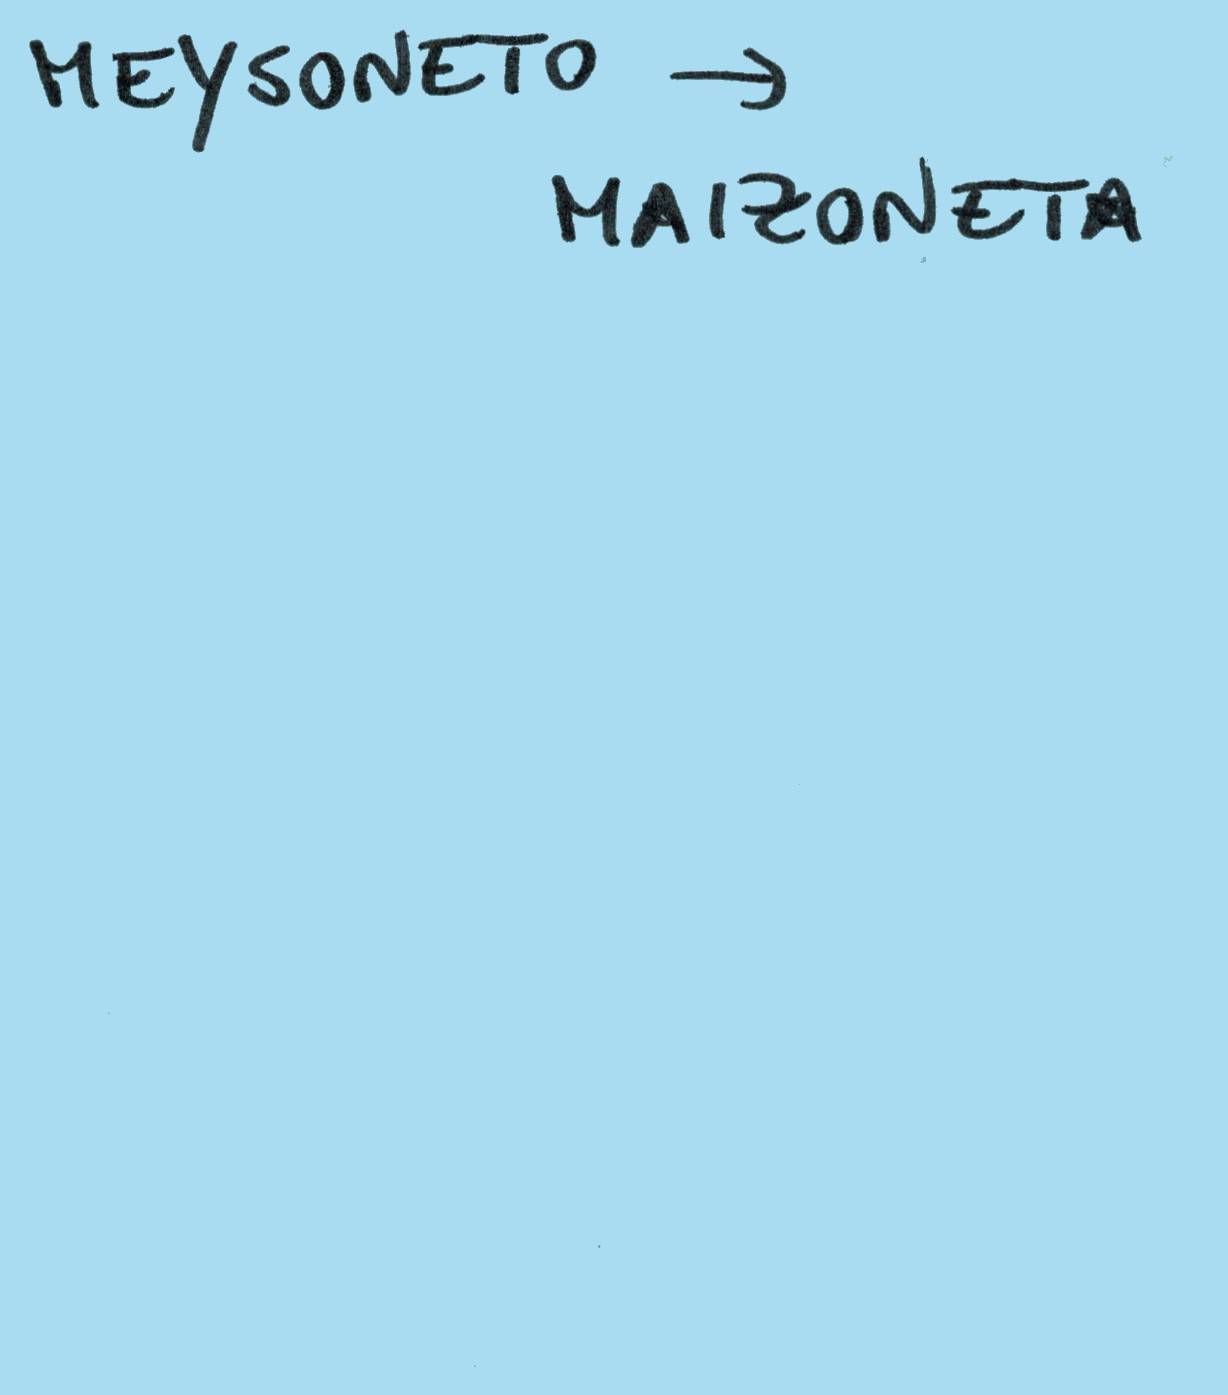 MEYSONETO →
MAIZONETA